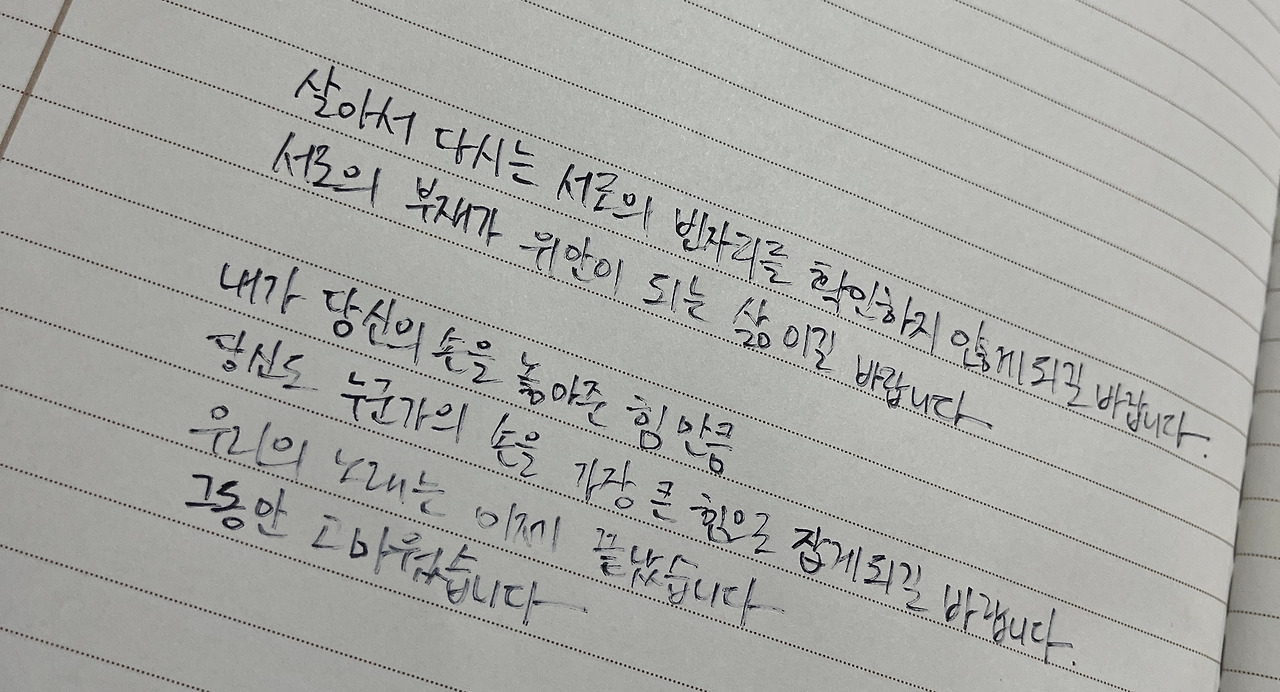 살아서 다시는 서로의 빈자리를 확인하지 않게되길 바랍니다.
서로의 부재가 위안이 되는 삶이길 바랍니다
내가 당신의 손을 놓아준 힘만큼
당신도 누군가의 손을 가장 큰 힘으로 잡게되길 바랍니다.
우리의 노래는 이제 끝났습니다
그동안 고마웠습니다